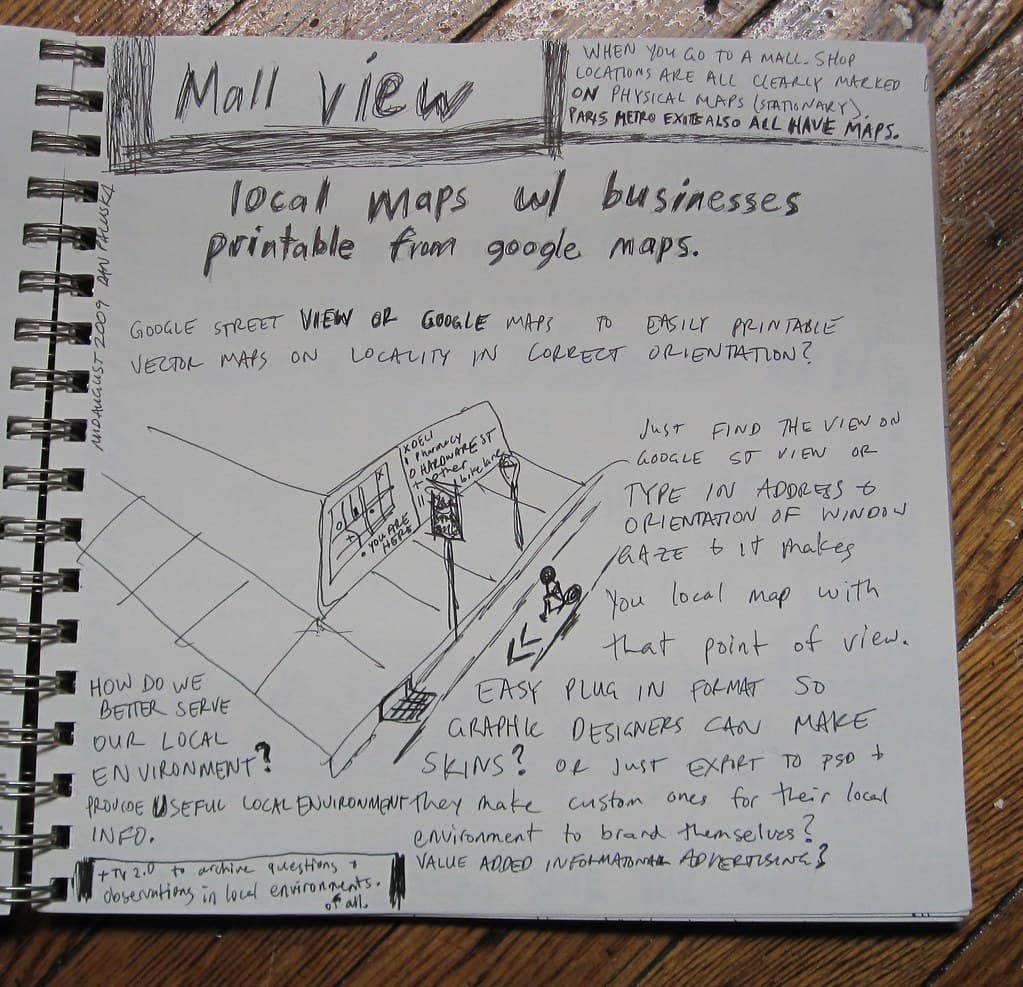 Mall view
WHEN YOU GO TO A MALL. SHOP
LOCATIONS ARE ALL CLEARLY MARKED
ON PHYSICAL MAPS (STATIONARY).
PARIS METRO EXITS ALSO ALL HAVE MAPS.
local maps w/ businesses
printable from google maps.
MID AUGUST 2009 DAN PALUSKA
GOOGLE STREET VIEW OR GOOGLE MAPS TO EASILY PRINTABLE
VECTOR MAPS ON LOCALITY IN CORRECT ORIENTATION?
X DELI
• Pharmacy
O HARDWARE ST
+ other
bike lane
• YOU ARE
HERE
JUST FIND THE VIEW ON
GOOGLE ST VIEW OR
TYPE IN ADDRESS &
ORIENTATION OF WINDOW
GAZE & it makes
you local map with
that point of view.
EASY PLUG IN FORMAT SO
GRAPHIC DESIGNERS CAN MAKE
SKINS? OR JUST EXPORT TO PSD +
They make custom ones for their local
environment to brand themselves?
VALUE ADDED INFORMATIONAL ADVERTISING?
HOW DO WE
BETTER SERVE
OUR LOCAL
ENVIRONMENT?
PROVIDE USEFUL LOCAL ENVIRONMENT
INFO.
+ TV 2.0 to archive questions +
observations in local environments.
of all.